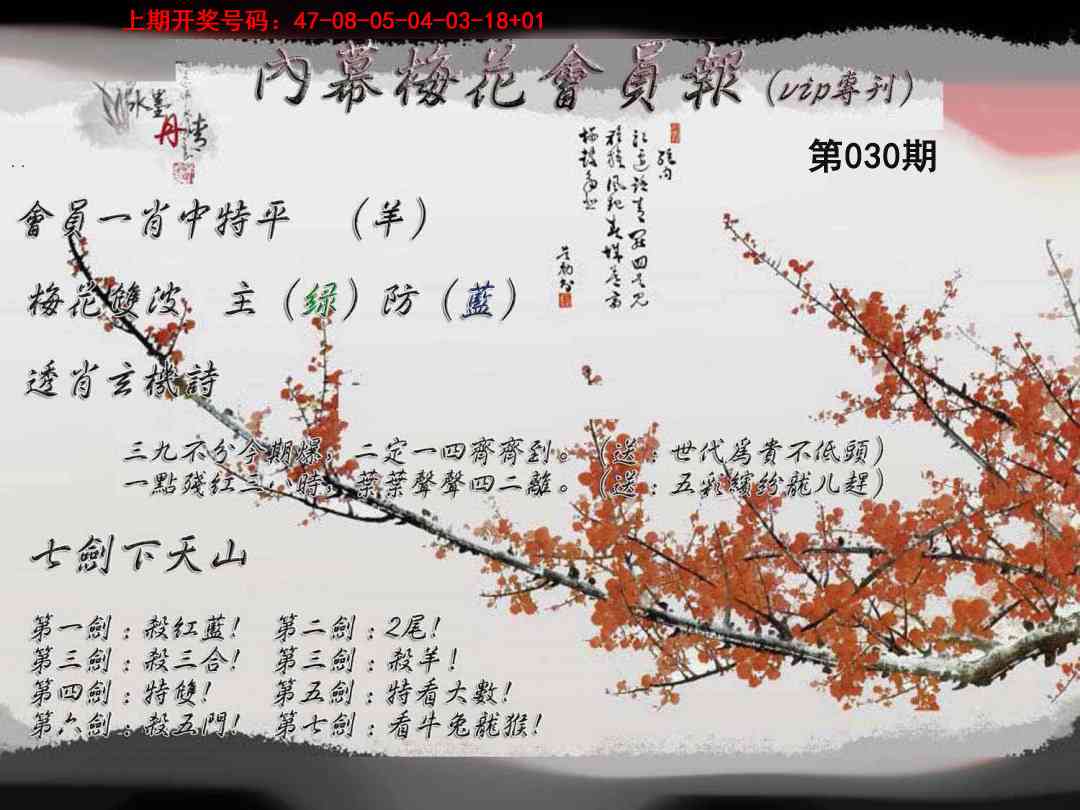 上期开奖号码：47-08-05-04-03-18+01
內幕梅花會員報（vip專刊）
水墨丹情
第030期
會員一肖中特平　（羊）
梅花雙波　主（绿）防（藍）
透肖玄機詩
三九不分今期爆，二定一四齊齊到。（送：世代爲貴不低頭）
一點殘紅三八時，葉葉聲聲四二離。（送：五彩繽紛龍儿趕）
七劍下天山
第一劍：殺紅藍！　第二劍：2尾！
第三劍：殺三合！　第三劍：殺羊！
第四劍：特雙！　第五劍：特看大數！
第六劍：殺五門！　第七劍：看牛兔龍猴！